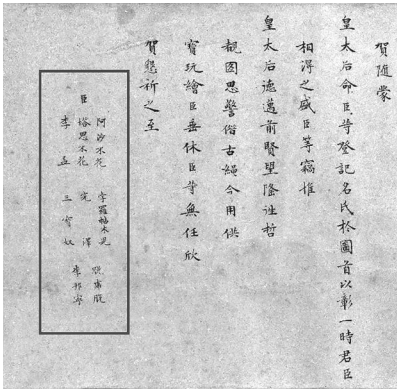 賀隨蒙
皇太后命臣等登記名氏於圖首以彰一時君臣
相得之盛臣等竊惟
皇太后德邁前賢聖隆往哲
觀圖思警古繩今用供
寶玩繪臣垂休臣等無任欣
賀懇祈之至
臣
阿沙不花 孛羅帖木兒 脫虎脫
塔思不花 完澤 李邦寧
李孟 三寶奴